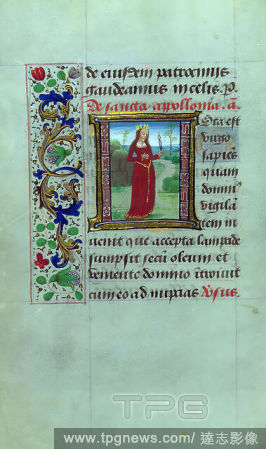 de eiusdem patrociniis
gaudeamus in celis. P.
De sancta appollonia. a.
Ista est
virgo
sapies
quam
domin9
vigilā
tem in
uenit que accepta lampade
sumpsit secū oleum et
veniente domino itroiuit
cum eo ad nuptias Vsus.
TPG
www.tpgnews.com / 達志影像